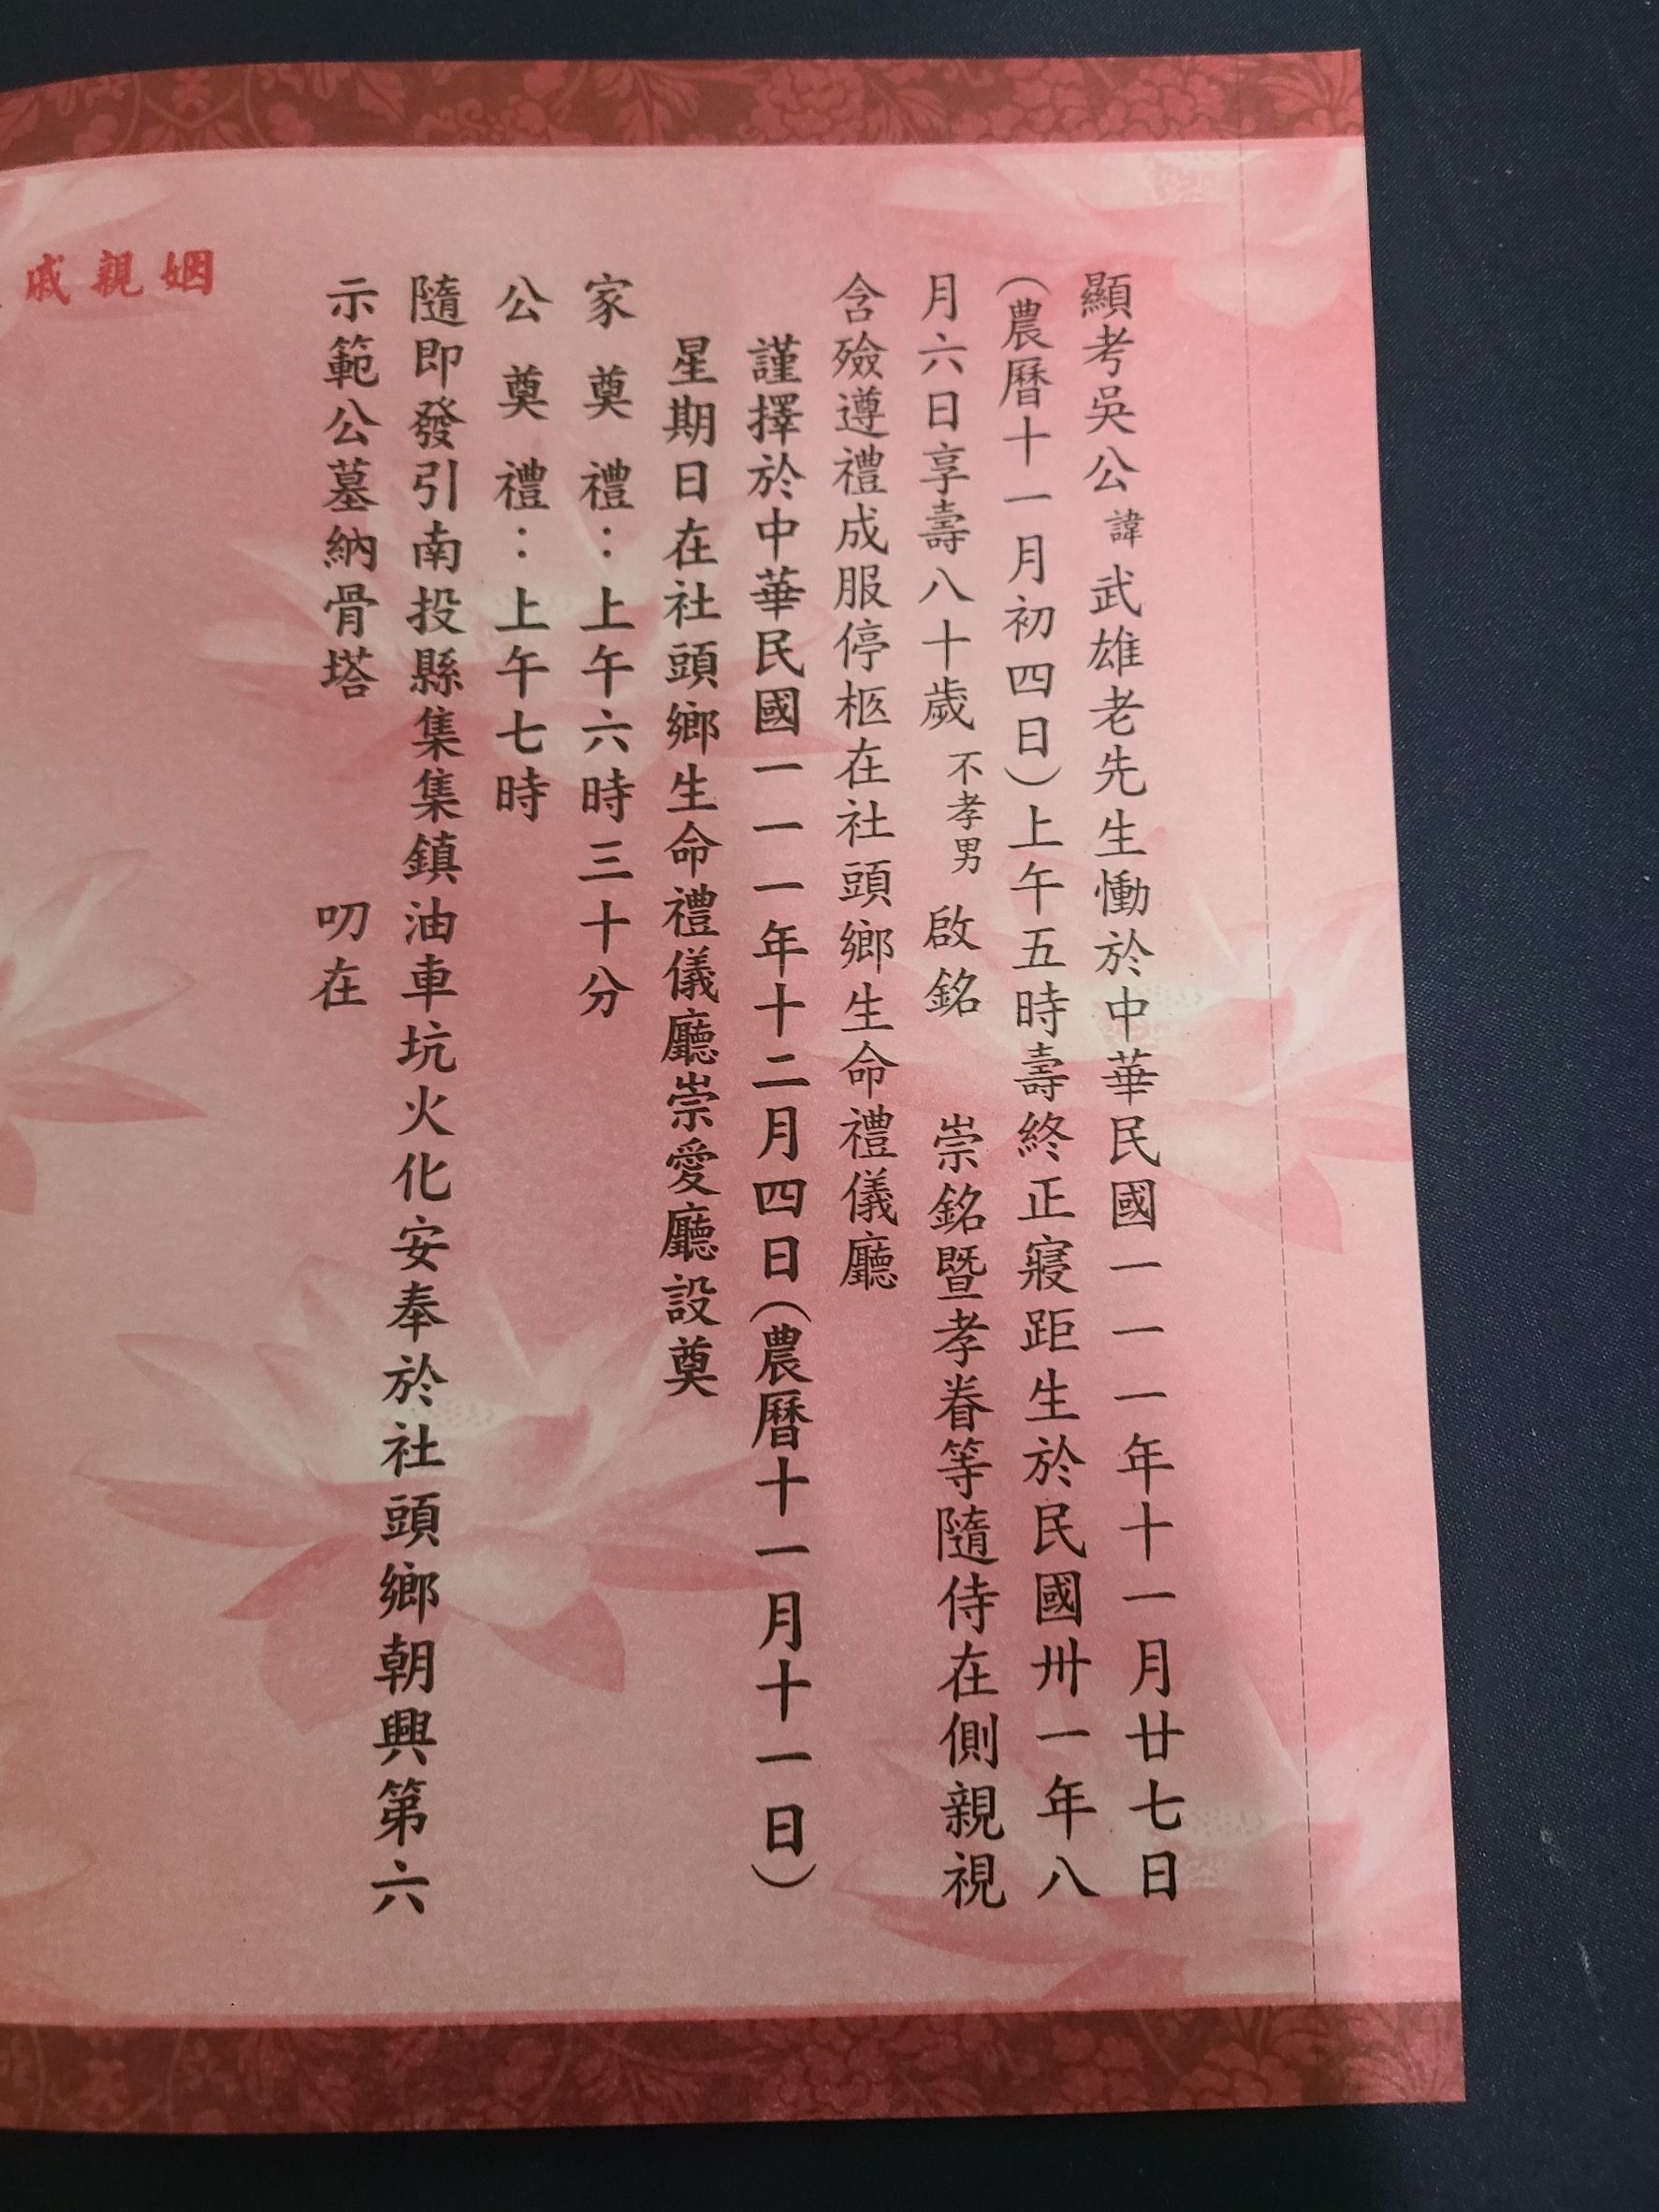 顯考吳公諱武雄老先生慟於中華民國一一一年十一月廿七日
(農曆十一月初四日)上午五時壽終正寢距生於民國卅一年八
月六日享壽八十歲不孝男啟銘 崇銘暨孝眷等隨侍在側親視
含殮遵禮成服停柩在社頭鄉生命禮儀廳
謹擇於中華民國一一一年十二月四日(農曆十一月十一日)
星期日在社頭鄉生命禮儀廳崇愛廳設奠
家奠禮：上午六時三十分
公奠禮：上午七時
隨即發引南投縣集集鎮油車坑火化安奉於社頭鄉朝興第六
示範公墓納骨塔 叨在
姻親戚